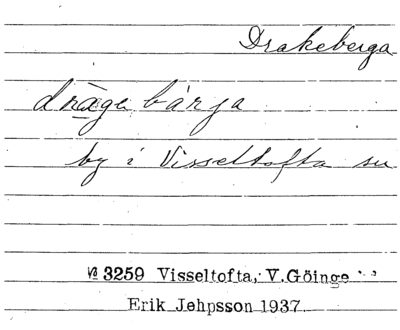 Drakeberga
drāga bárja
by i Visseltofta sn
№ 3259 Visseltofta, V.Göinge
Erik Jehpsson 1937.